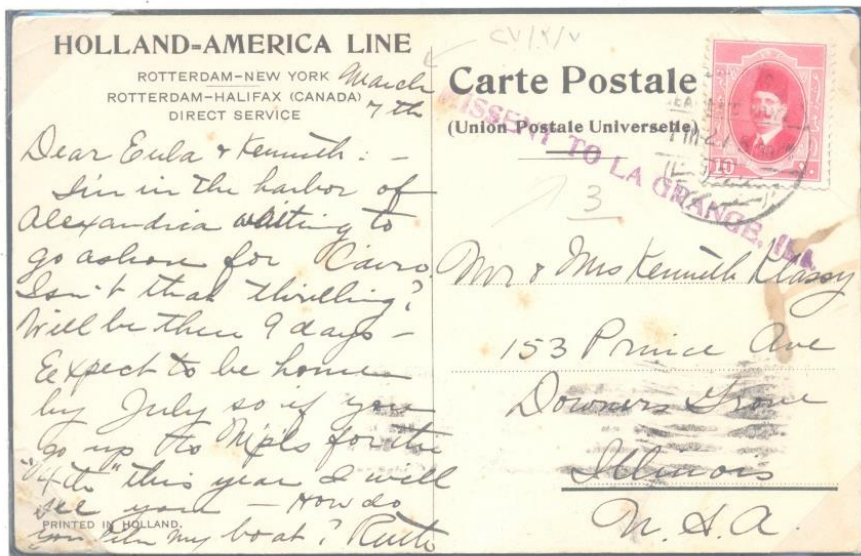 HOLLAND=AMERICA LINE
ROTTERDAM–NEW YORK
ROTTERDAM–HALIFAX (CANADA)
DIRECT SERVICE
March
7th
Dear Eula & Kenneth: –
I'm in the harbor of
Alexandria waiting to
go ashore for Cairo.
Isn't that thrilling?
Will be there 9 days –
Expect to be home
by July so if you
go up to Mpls for the
"4th" this year I will
see you – How do
you like my boat? Ruth
PRINTED IN HOLLAND.
Carte Postale
(Union Postale Universelle)
MISSENT TO LA GRANGE, ILL.
3
10
Mr & Mrs Kenneth Klassy
153 Prince Ave
Downers Grove
Illinois
U.S.A.